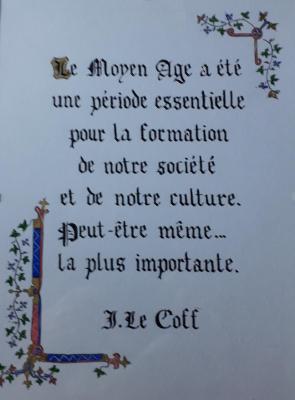 Le Moyen Age a été
une période essentielle
pour la formation
de notre société
et de notre culture.
Peut-être même...
la plus importante.
J. Le Goff